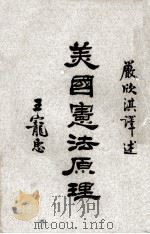 嚴欣淇譯述
美國憲法原理
王寵惠